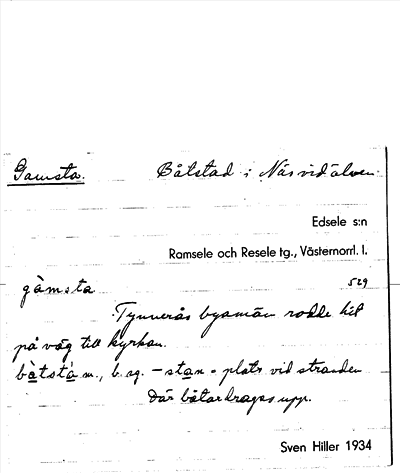 Gamsta. Båtstad i Näs vid älven.
Edsele s:n
Ramsele och Resele tg., Västernorrl. l.
gàmsta 529
Tynnerås byamän rodde hit
på väg till kyrkan.
bàtstà n., b. sg. -stan = plats vid stranden
där båtar drages upp.
Sven Hiller 1934